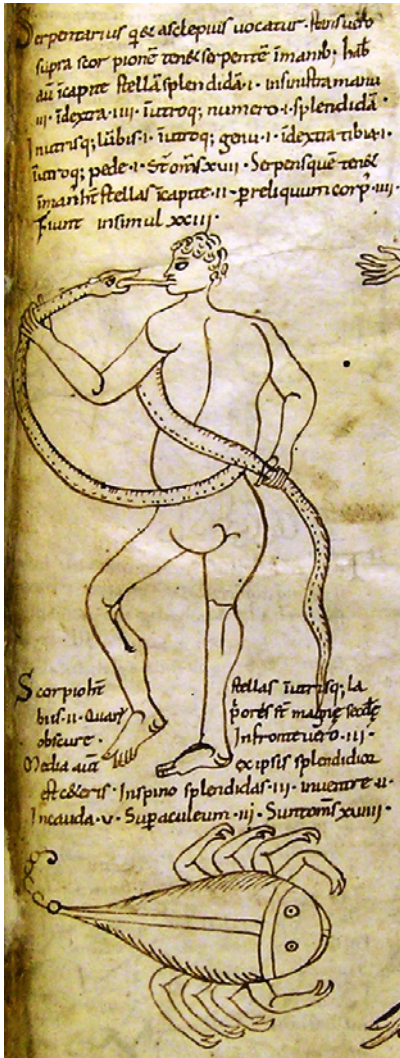 Serpentarius q̄ & asclepius vocatur · stans u&o
supra scor pionē ten& serpentē īmanib; hab&
aū īcapite stellā splendidā · i · insinistra manu
iii · īdextra · iiii · īutroq; numero · i · splendidā ·
Inutrisq; lūbis · i · īutroq; genu · i · īdextra tibia · i ·
īutroq; pede · i · St̄ om̄s xvii · Serpens quē ten&
īmanib; ht̄ stellas īcapite · ii · p reliquum corp̄ · iiii ·
Fiunt insimul xxiii ·
Scorpio ht̄ stellas īutrisq; la
biis · ii · Quarū p̄ores st̄ magnę secdę
obscure · Infronte vero · iii ·
Media aūt ex ipsis splendidior
est c&eris · Inspino splendidas · iii · inventre · ii ·
Incauda · v · Sup aculeum · iij · Sunt om̄s xviiii ·